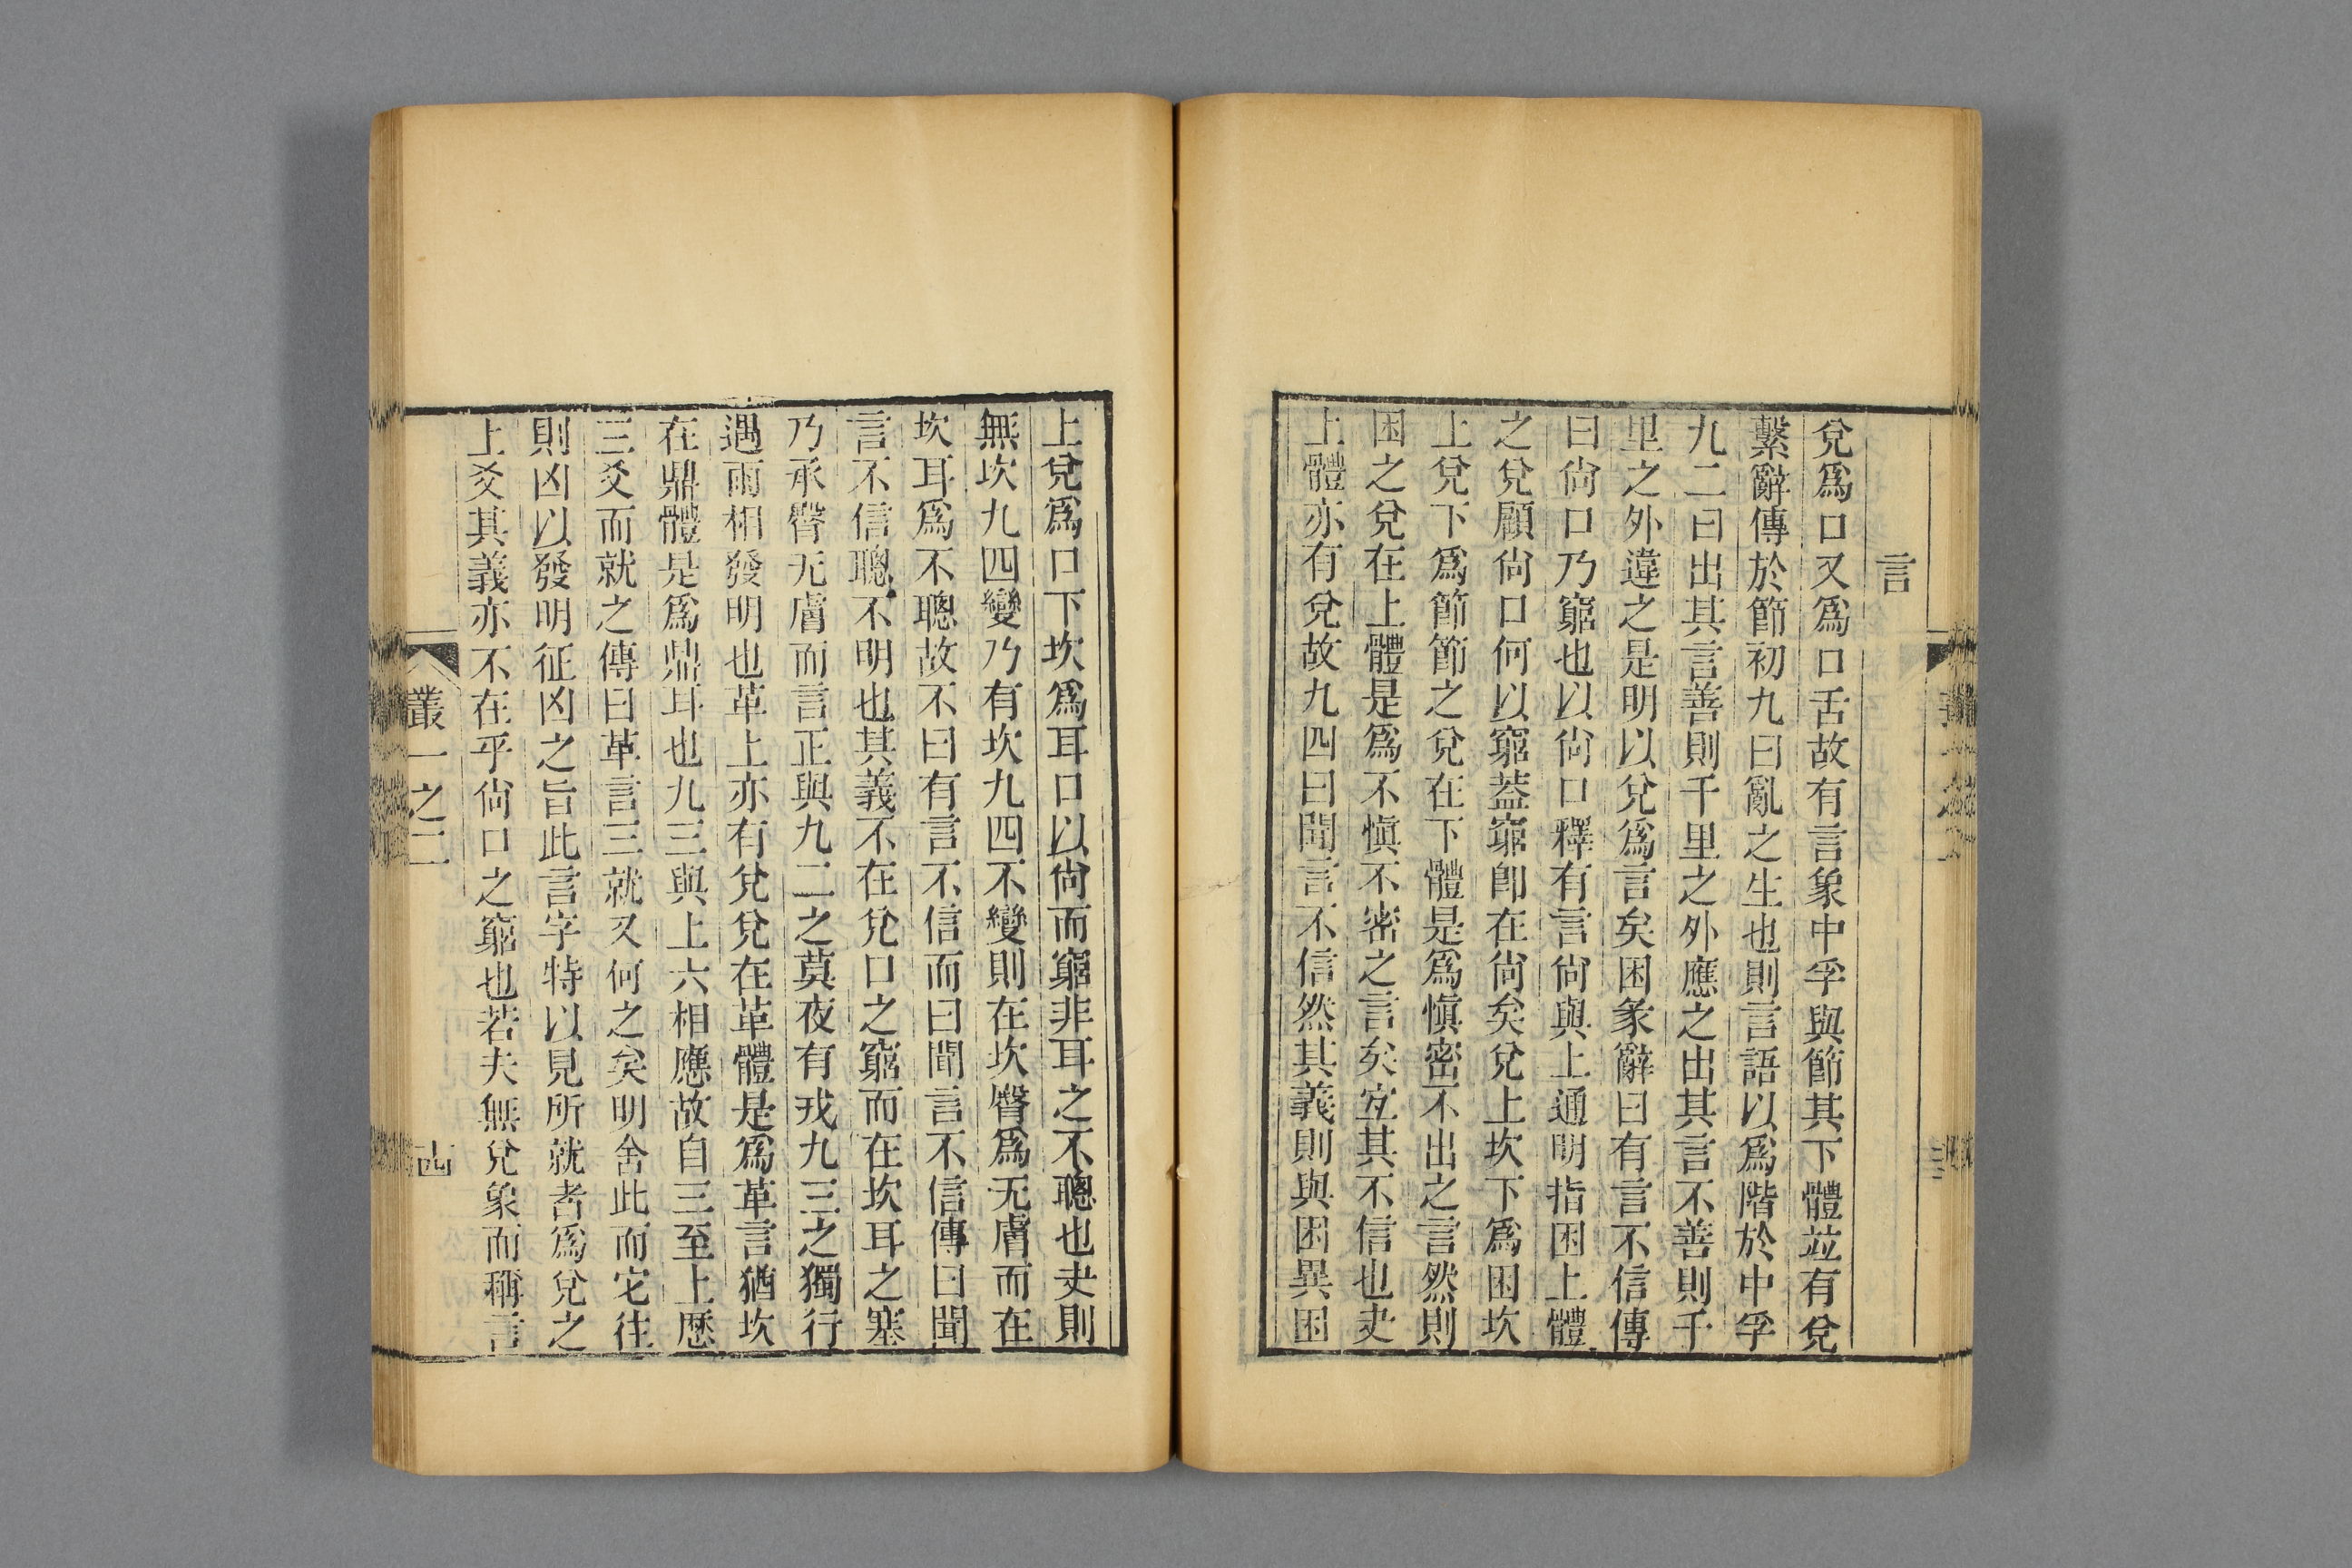 言
兌爲口又爲口舌故有言象中孚與節其下體竝有兌
繫辭傳於節初九曰亂之生也則言語以爲階於中孚
九二曰出其言善則千里之外應之出其言不善則千
里之外違之是明以兌爲言矣困彖辭曰有言不信傳
曰尙口乃窮也以尙口釋有言尙與上通明指困上體
之兌顧尙口何以窮蓋窮卽在尙矣兌上坎下爲困坎
上兌下爲節節之兌在下體是爲愼密不出之言然則
困之兌在上體是爲不愼不密之言矣宐其不信也夬
上體亦有兌故九四曰聞言不信然其義則與困異困
上兌爲口下坎爲耳口以尙而窮非耳之不聰也夬則
無坎九四變乃有坎九四不變則在坎臀爲无膚而在
坎耳爲不聰故不曰有言不信而曰聞言不信傳曰聞
言不信聰不明也其義不在兌口之窮而在坎耳之塞
乃承臀无膚而言正與九二之莫夜有戎九三之獨行
遇雨相發明也革上亦有兌兌在革體是爲革言猶坎
在鼎體是爲鼎耳也九三與上六相應故自三至上歷
三爻而就之傳曰革言三就又何之矣明舍此而它往
則凶以發明征凶之旨此言字特以見所就者爲兌之
上爻其義亦不在乎尙口之窮也若夫無兌象而稱言
叢一之二
十四